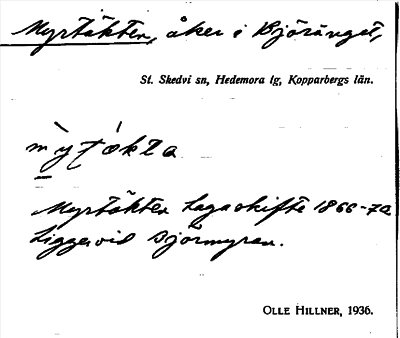 Myrtäkten, åker i Björänget,
St. Skedvi sn, Hedemora tg, Kopparbergs län.
mỳt́ækta
Myrtäkten Laga skifte 1866-72
Ligger vid Björmyran.
OLLE HILLNER, 1936.